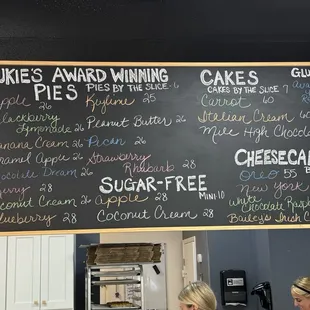 UKIE'S AWARD WINNING
PIES PIES BY THE SLICE-6
Apple 26
Blackberry
Lemonade 26
Banana Cream 26
Caramel Apple 26
Chocolate Dream 26
Cherry 28
Coconut Cream 28
Blueberry 28
Keylime 25
Peanut Butter 26
Pecan 26
Strawberry
Rhubarb 28
SUGAR-FREE
MINI 10
Apple 28
Coconut Cream 28
CAKES
CAKES BY THE SLICE 7
Carrot 60
Italian Cream 60
Mile High Chocola
CHEESECA
Oreo 55
New York
White
Chocolate Raspb
Baileys Irish C
GLU